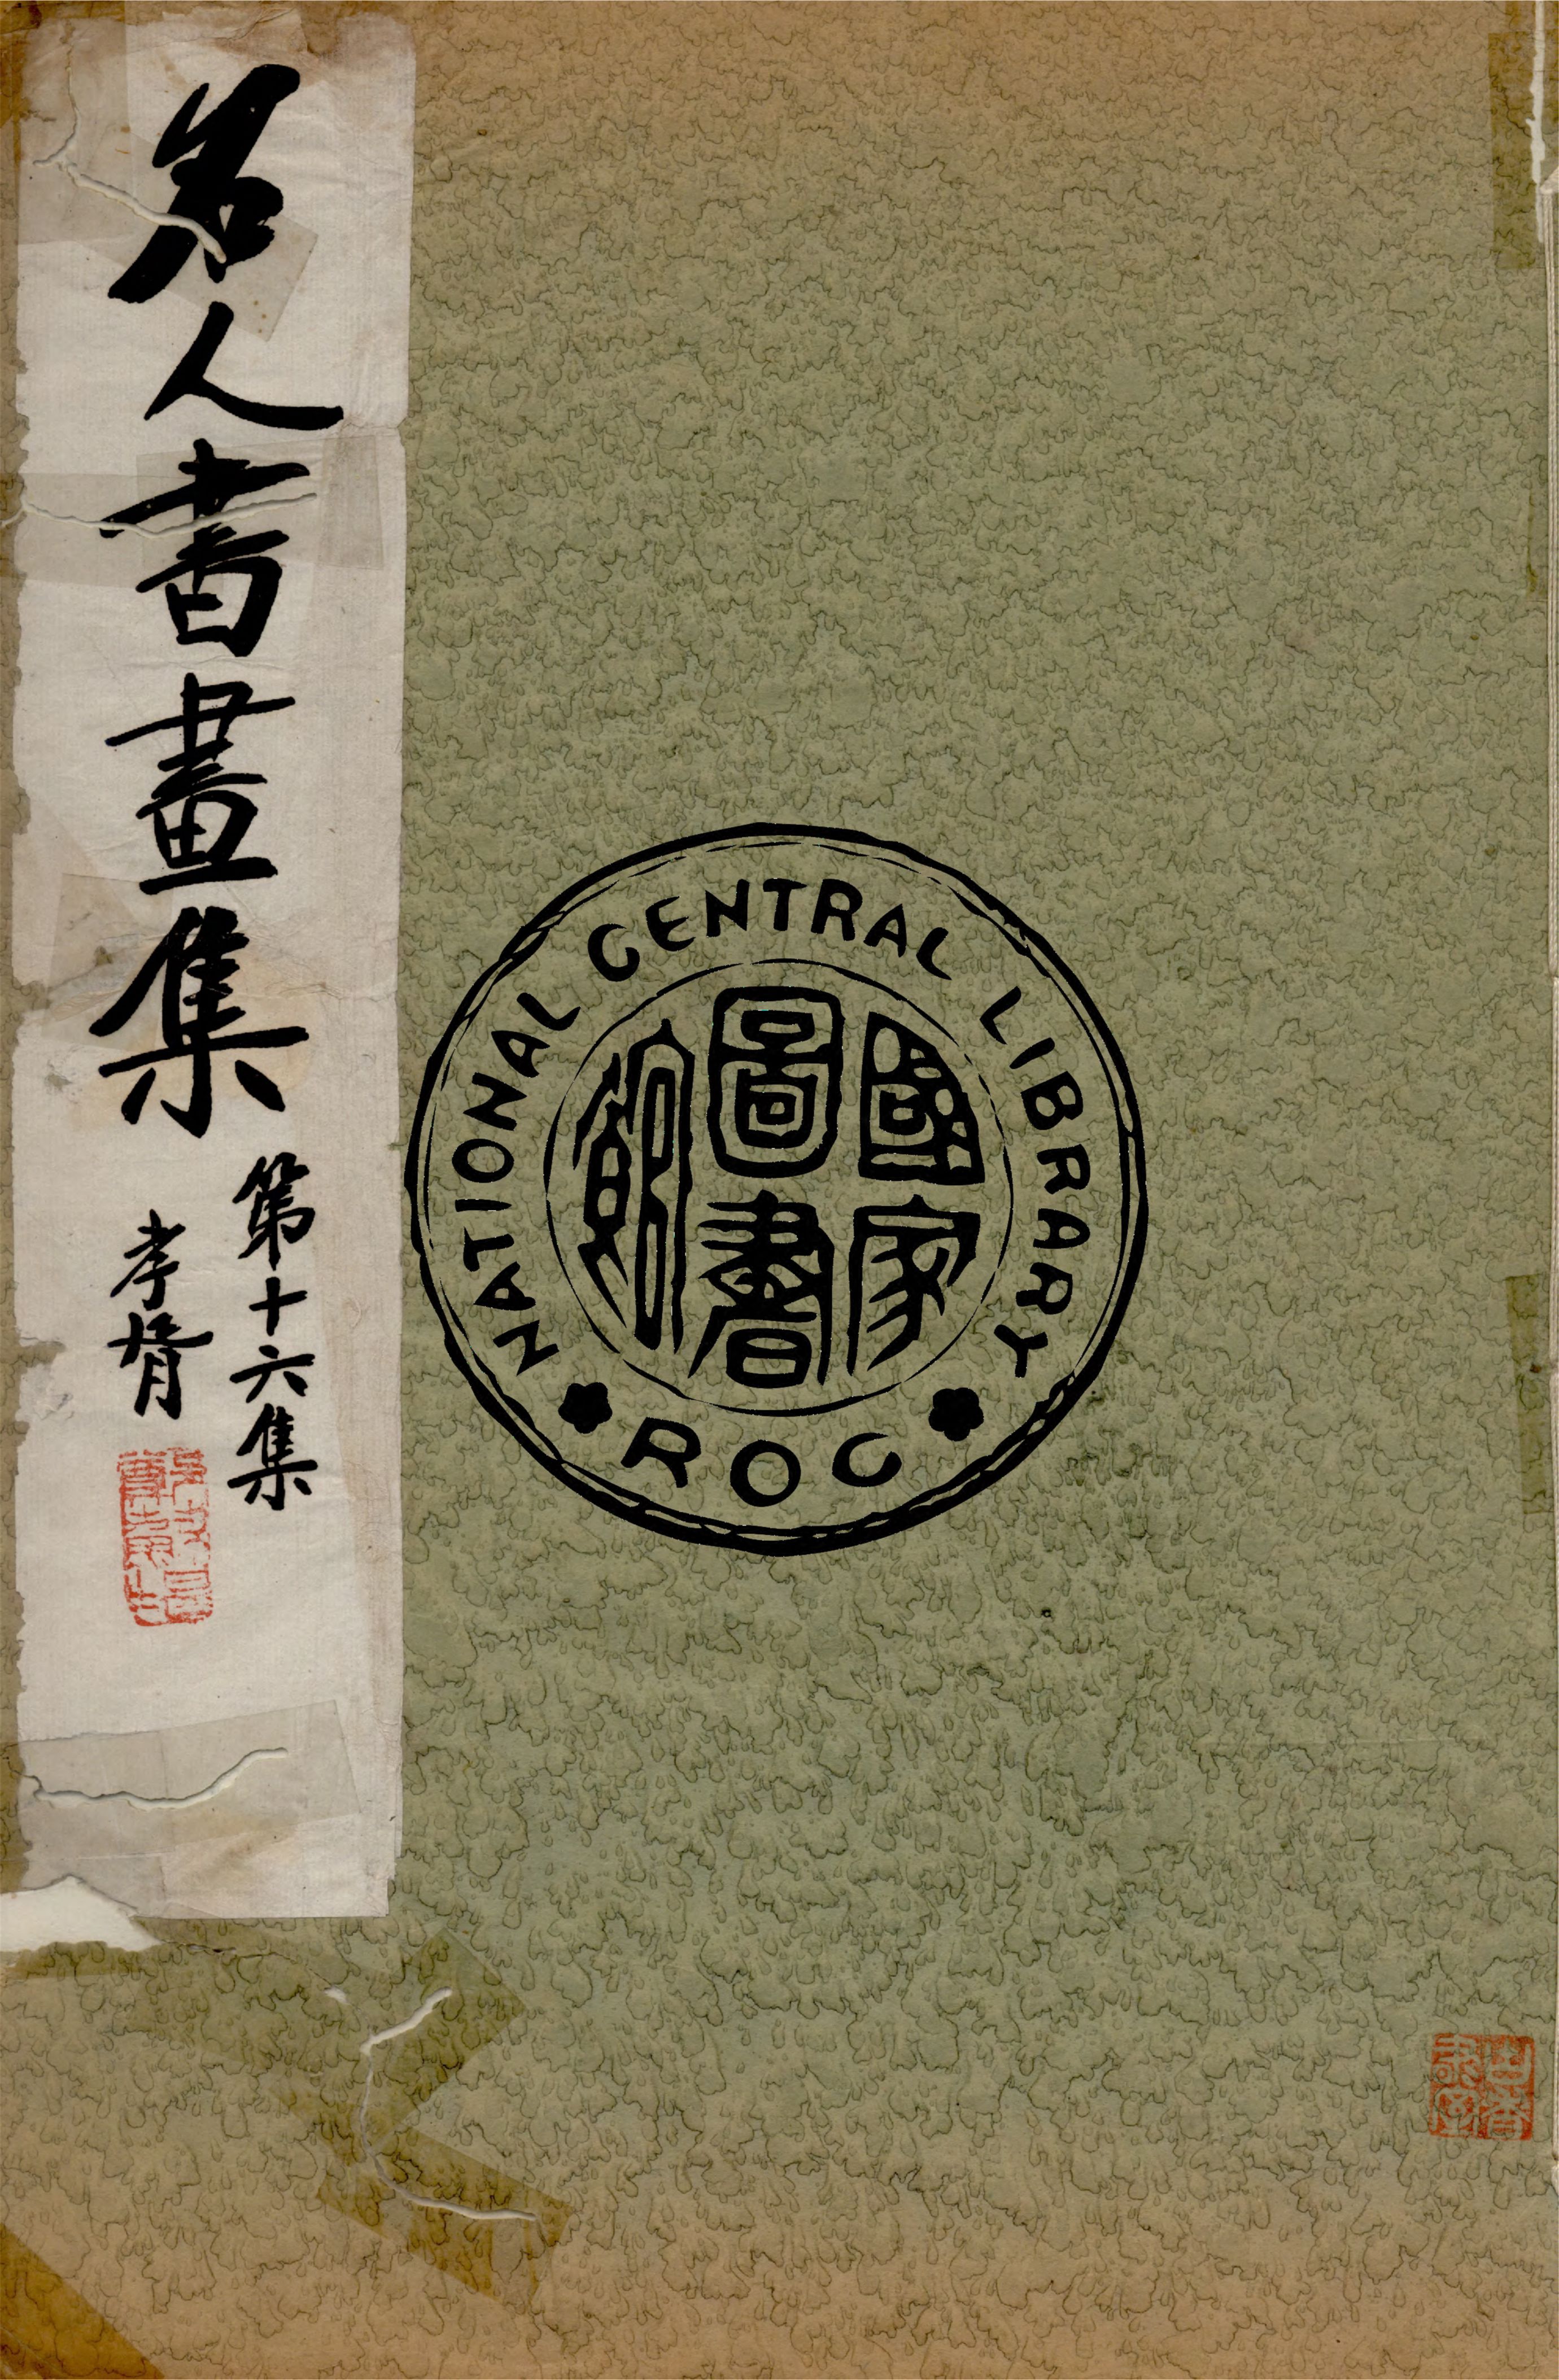 名人書畫集
第十六集
孝胥
NATIONAL CENTRAL LIBRARY
國家
圖書
館
ROC